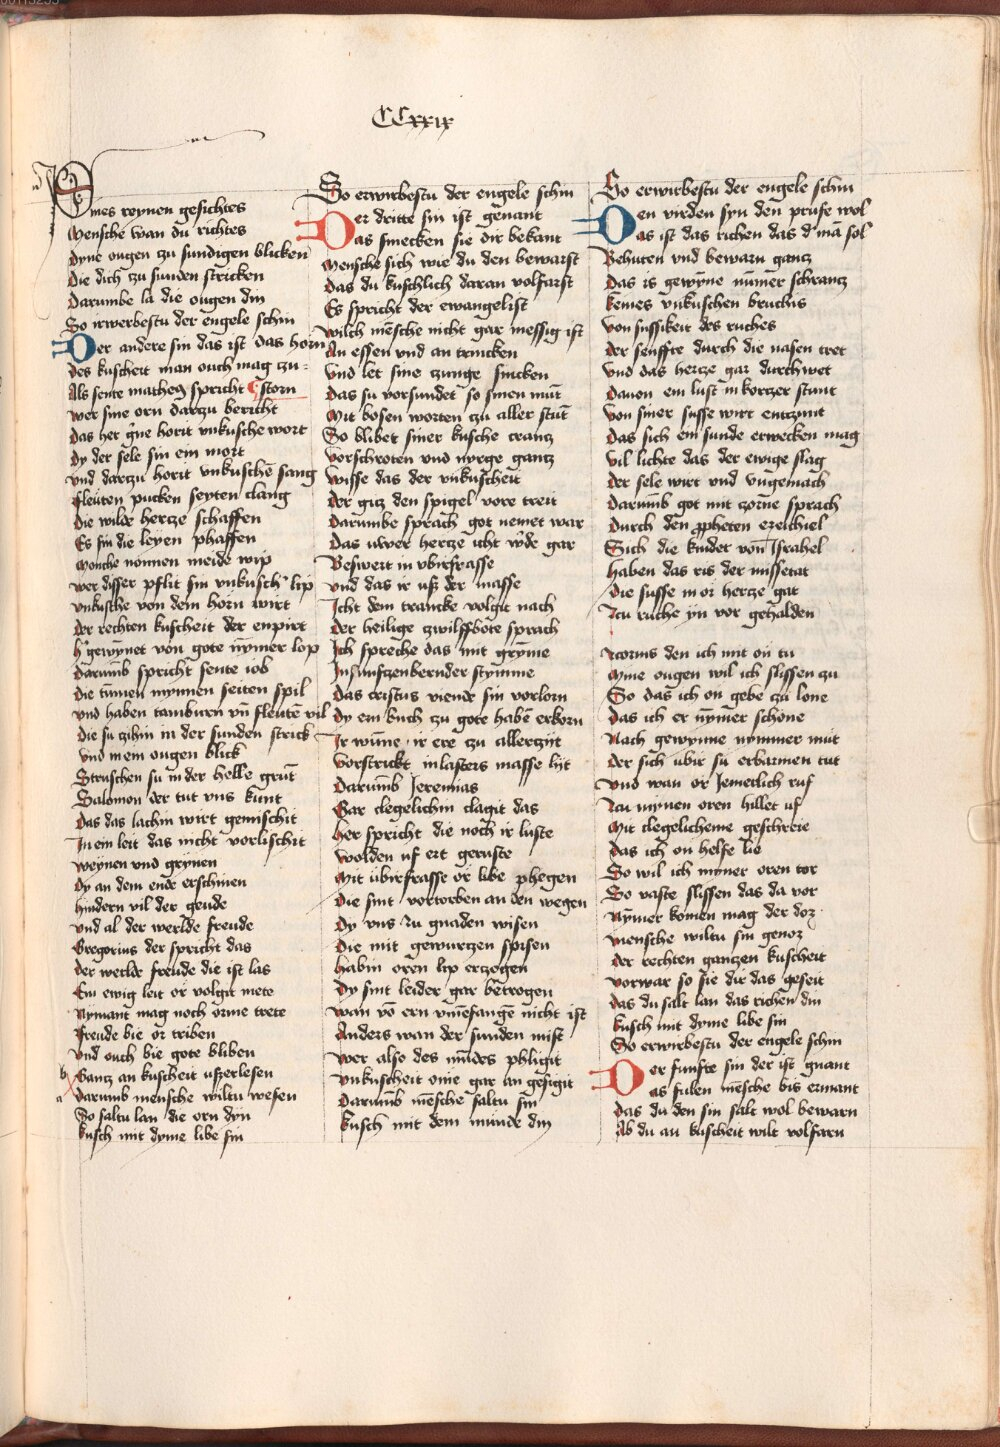 CCxxix
Dines reynen gesichtes
Mensche wan du richtes
Dyne ougen zu sundigen blicken
Die dich zu sunden stricken
Darumbe la die ougen din
So irwerbestu der engele schin
Der andere sin das ist das horn
Des kuscheit man ouch mag zu-
Als sente matheus spricht storn
Wer sine orn darzu bericht
Das her gerne horit unkusche wort
Dy der sele sin ein mort
Und darczu horit unkuschē sang
Fleuten pucken seyten clang
Die wilde hertze schaffen
Es sin die leyen phaffen
Monche nonnen meide wip
Wer disser pflit sin unkusch lip
Unkusche von dem horn wirt
Der rechten kuscheit der enpirt
gewynet von gote nȳmer lop
Darumb spricht sente iob
Die tunnen mynnen seiten spil
Und haben tamburn uñ fleutē vil
Die su zihin in der sunden strick
Und mein ougen blick
Struschen su in der helle grūt
Salomon der tut uns kunt
Das das lachin wirt gemischit
In ein leit das nicht vorlischit
Weynen und grynen
Dy an dem ende erschinen
hindern vil der geude
Und al der werlde freude
Gregorius der spricht das
Der werlde freude die ist las
Ein ewig leit or volgit mete
Nymant mag noch orme trete
Freude bie or triben
Und ouch bie gote bliben
b Gantz an kuscheit uszerlesen
a Darumb mensche wiltu wesen
So saltu lan die orn dyn
kusch mit dyme libe sin
So erwirbestu der engele schin
Der dritte sin ist genant
Das smecken sie dir bekant
Mensche sich wie du den bewarst
Das du kuschlich daran volfarst
Es spricht der ewangelist
Wilch mēsche nicht gar messig ist
An essen und an trincken
Und let sine zunge sincken
Das su vorsundet so sinen mūt
Mit bosen worten zu aller stūt
So blibet siner kusche crantz
Vorschroten und nyrge gantz
Wisse das der unkuscheit
Der gitz den spigel vore treit
Darumbe sprach got nemet war
Das uwer hertze icht w'de gar
Beswert in ubirfrasse
Und das ir usz der masse
Icht dem trancke volgit nach
Der heilige zwilffbote sprach
Ich spreche das mit gryme
In sunfczenbernder stymme
Das cristus viende sin vorlorn
Dy em buch zu gote habē erkorn
Ir wūne ir ere zu allerzijt
Vorstrickt in lasters masse lijt
Darumb Jeremias
Gar clegelichin clagit das
Her spricht die noch ir luste
Wolden uf ert geruste
Mit ubirfrasse or libe phegen
Die sint vortorben an den wegen
Dy uns zu gnaden wisen
Die mit gewurtzen spisen
Habin oren lip erzogen
Dy sint leider gar betrogen
Wan vō ern umēfangē nicht ist
Anders wan der sunden mist
Wer also des mūdes phligit
Unkuscheit onie gar an gesigit
Darumb mēsche saltu sin
Kusch mit dem munde din
So erwirbestu der engele schin
Den virden syn den prufe wol
Das ist das richen das d' mā sol
Behuten und bewarn gantz
Das is gewyne nūmer schrantz
Keines unkuschen bruchis
Von sussikeit des ruches
Der senffte durch die nasen tret
Und das hertze gar durchwet
Davon ein lust in kortzer stunt
Von siner susse wirt entzunt
Das sich ein sunde erwecken mag
Vil lichte das der ewige slag
Der sele wirt und ungemach
Darumb got mit zorne sprach
Durch den propheten ezechiel
Sich die kinder von Israhel
Haben das ris der missetat
Die susse in or hertze gat
Zcu ruche yn vor gehalden

Zcorns den ich mit on tu
Myne ougen wil ich slissen zu
So das ich on gebe zu lone
Das ich er nymer schone
Nach gewynne nymmer mut
Der sich ubir su erbarmen tut
Und wan or Jemerlich ruf
Zcu mynen oren hillet uf
Mit clegelicheme geschreie
Das ich on helfe lie
So wil ich myner oren tor
So vaste slissen das da vor
Nymer komen mag der doz
Mensche wiltu sin genoz
Der rechten gantzen kuscheit
Vorwar so sie dir das geseit
Das du salt lan das richen din
Kusch mit dyme libe sin
So erwirbestu der engele schin
Der funfte sin der ist gnant
Das fulen mēsche bis ermant
Das du den sin salt wol bewarn
Ab du an kuscheit wilt volfarn